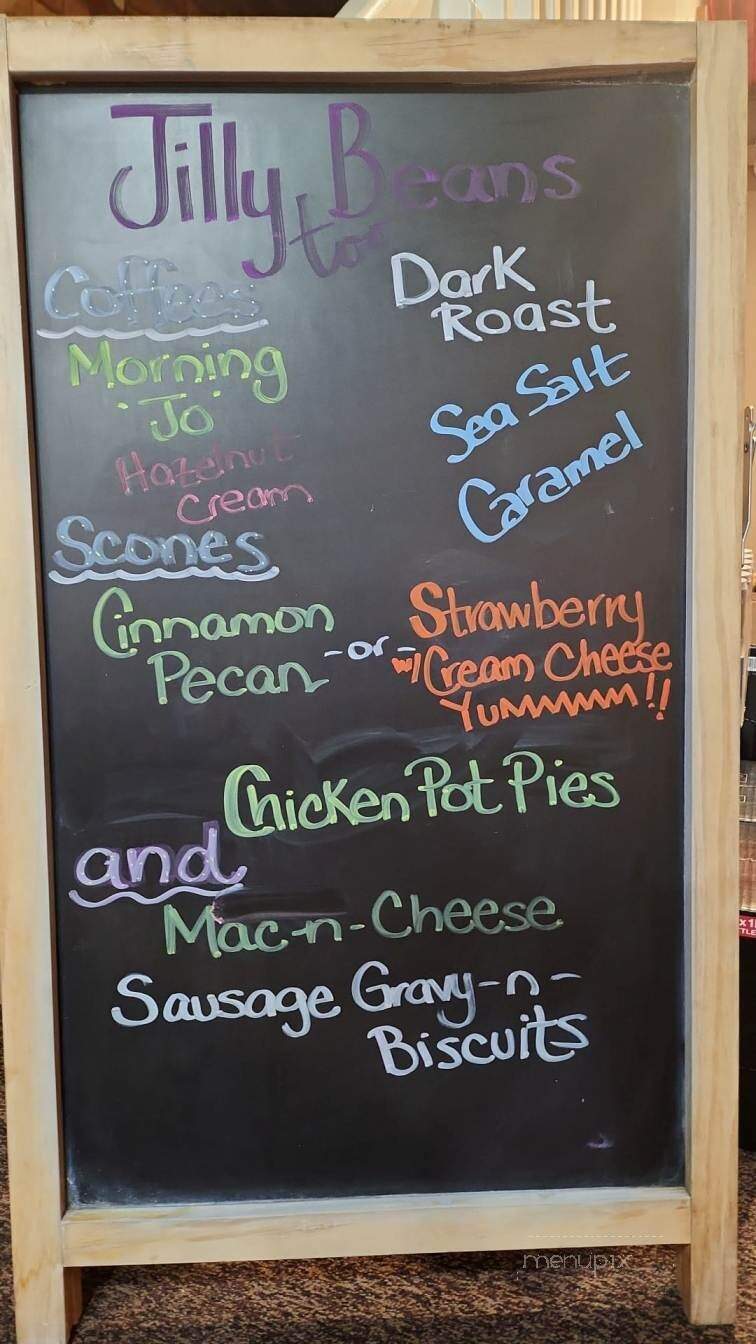 Jilly Beans
too
Coffees
Morning
Jo
Hazelnut
Cream
Dark
Roast
Sea Salt
Caramel
Scones
Cinnamon
Pecan
-or-
Strawberry
w/ Cream Cheese
Yummmm!!
Chicken Pot Pies
and
Mac-n-Cheese
Sausage Gravy-n-
Biscuits
menupix